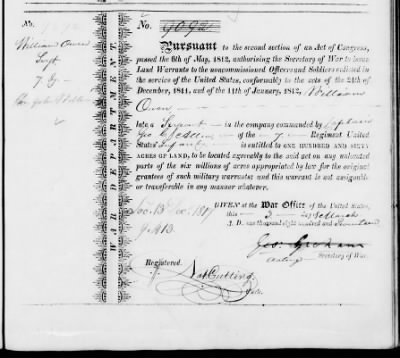 No. 9092
William Owen
7
WAR DEPARTMENT
No. 9092
Pursuant to the second section of an Act of Congress,
passed the 6th of May, 1812, authorising the Secretary of War to issue
Land Warrants to the noncommissioned Officers and Soldiers enlisted in
the service of the United States, conformably to the acts of the 24th of
December, 1811, and of the 11th of January, 1812, William
Owen
late a Sergeant in the company commanded by Captain
Geo of the 7 Regiment United
States Infantry is entitled to ONE HUNDRED AND SIXTY
ACRES OF LAND, to be located agreeably to the said act on any unlocated
parts of the six millions of acres appropriated by law for the original
grantees of such military warrants; and this warrant is not assignable
or transferable in any manner whatever.
GIVEN at the War Office of the United States,
this 3 of March
A. D. one thousand eight hundred and
Geo: Graham
acting Secretary of War.
Registered.
Nat Cutting